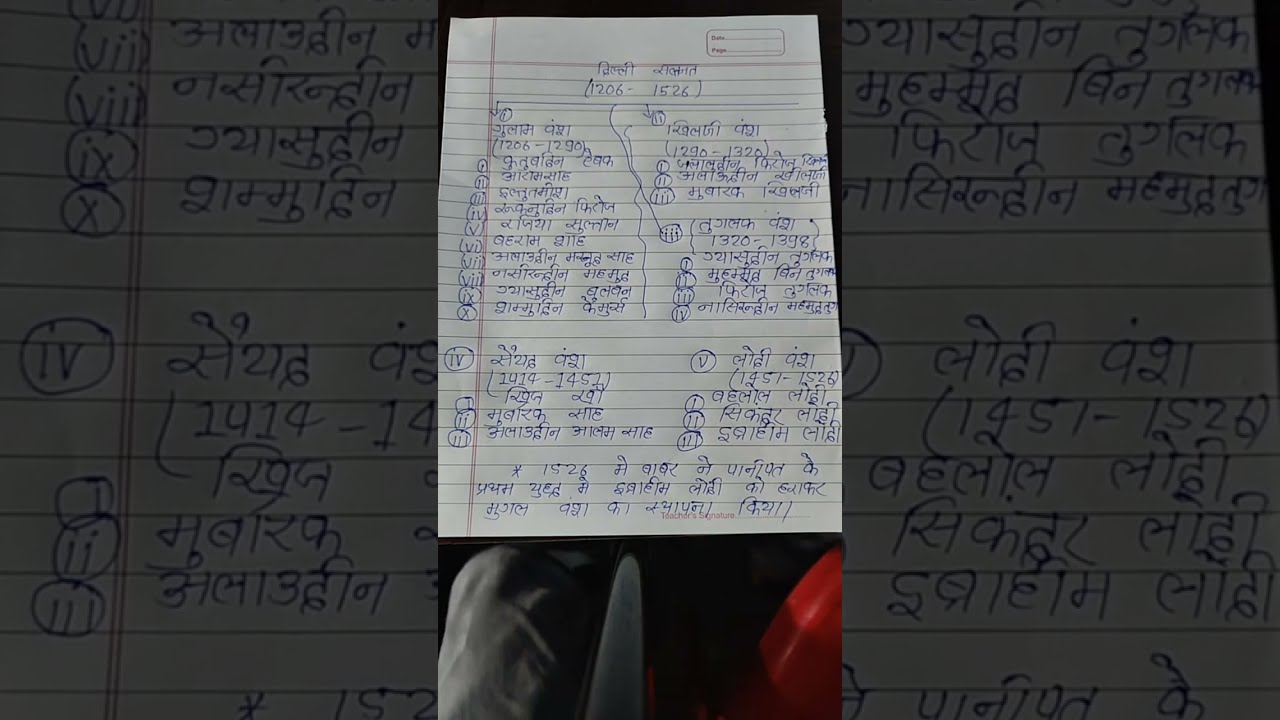 Date
Page
दिल्ली सल्नत
(1206 - 1526)
(i)
गुलाम वंश
(1206-1290)
(i) कुतुबद्दिन ऐबक
(ii) आरामसाह
(iii) इल्तुतमीश
(iv) रूकनुद्दिन फिरोज
(v) रजिया सुल्तान
(vi) बहराम शाह
(vii) अलाउद्दीन मसूद साह
(viii) नसीरुद्दीन महमुद
(ix) ग्यासुद्दीन बुलबन
(x) शम्मुद्दिन कैमुर्स
(ii)
खिलजी वंश
(1290-1320)
(i) जलालुद्दीन फिरोज खिलजी
(ii) अलाउद्दीन खीलजी
(iii) मुबारक खिलजी
(iii) तुगलक वंश
(1320-1398)
(i) ग्यासुद्दीन तुगलक
(ii) मुहम्मद बिन तुगलक
(iii) फिरोज तुगलक
(iv) नासिरुद्दीन महमुद तुग
(iv) सैयद वंश
(1414-1451)
(i) खिज्र खाँ
(ii) मुबारक साह
(iii) अलाउद्दीन आलम साह
(v) लोदी वंश
(1451-1526)
(i) बहलोल लोदी
(ii) सिकंदर लोदी
(iii) इब्राहीम लोदी
* 1526 मे बाबर ने पानीपत के
प्रथम युद्ध मे इब्राहीम लोदी को हराकर
मुगल वंश का स्थापना किया।
Teacher's Signature